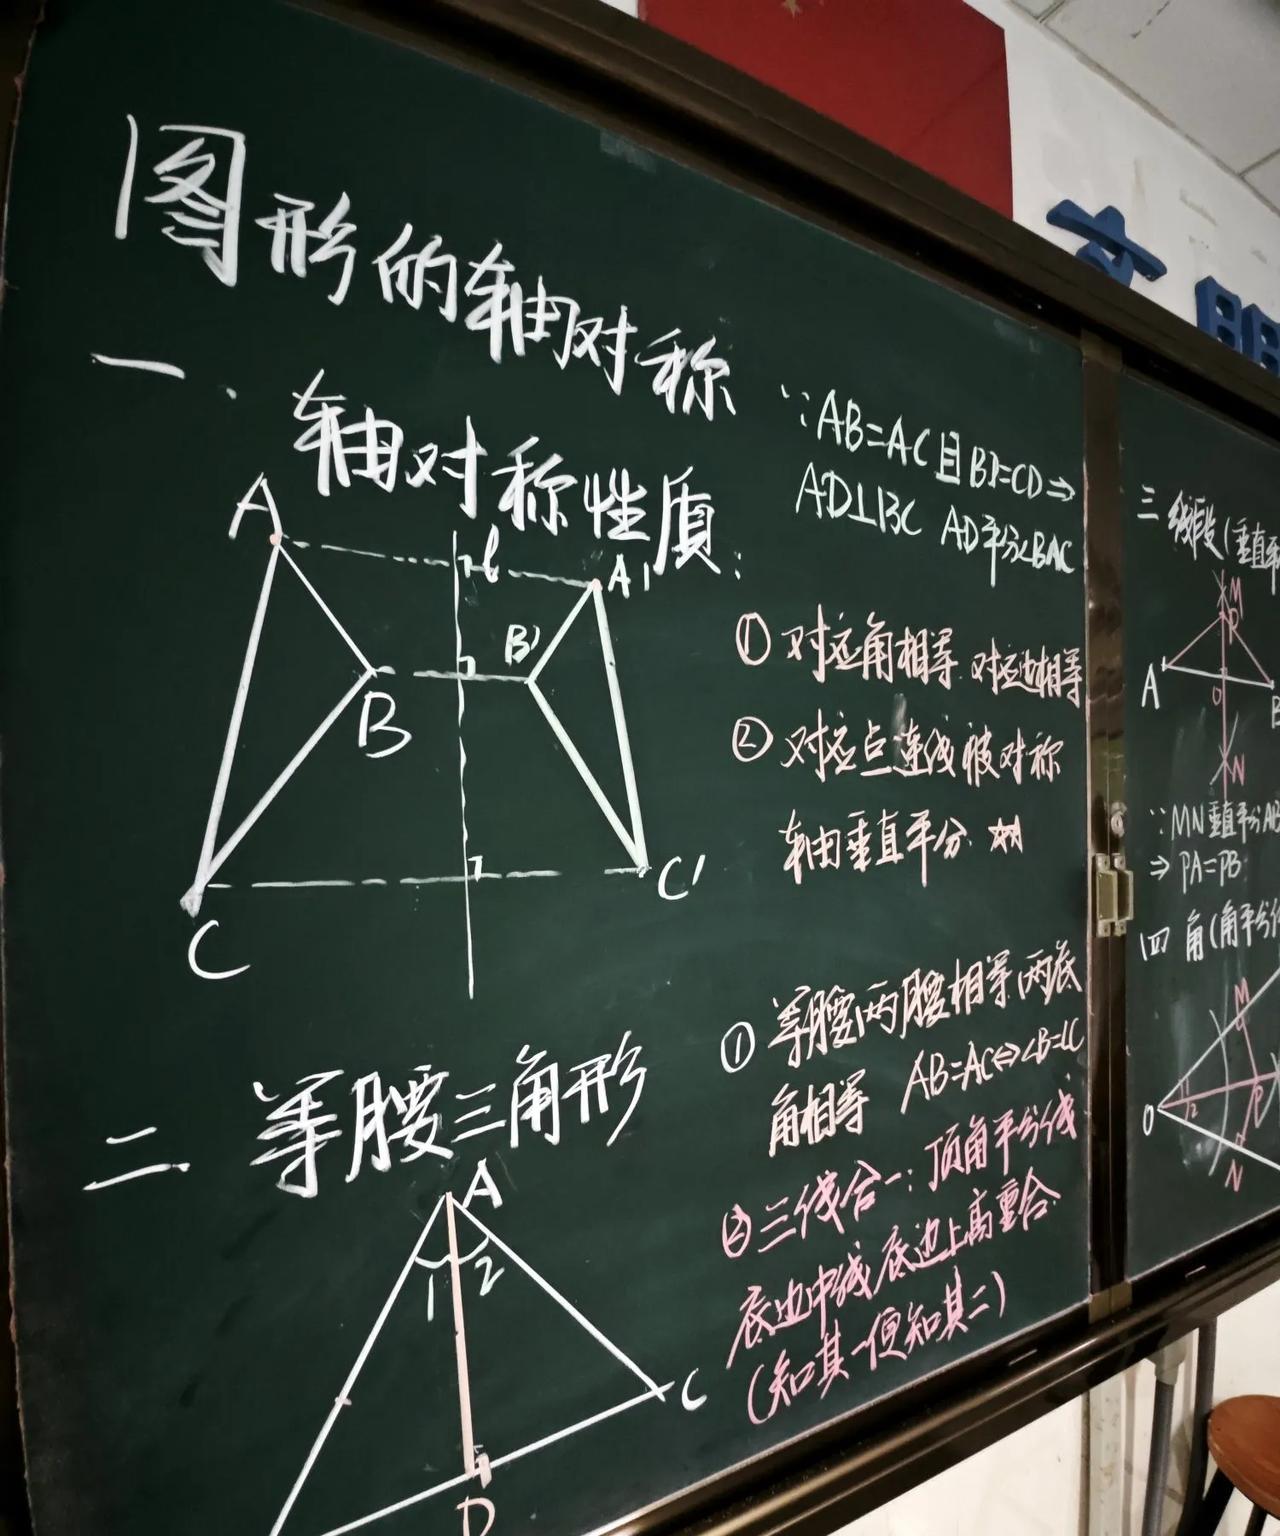 图形的轴对称
一、轴对称性质:
A
l
A'
B
B'
C
C'
∵AB=AC且BD=CD⇒
AD⊥BC AD平分∠BAC
①对应角相等 对应边相等
②对应点连线被对称
轴垂直平分 ☆
二 等腰三角形
A
1 2
C
D
①等腰△两腰相等,两底
角相等 AB=AC⇔∠B=∠C
②三线合一:顶角平分线
底边中线 底边上高重合
(知其一便知其二)
三 线段(垂直平
M
P
A
O
B
N
∵MN垂直平分AB
⇒PA=PB
四 角(角平分线
M
O
1
2
P
N
文 明